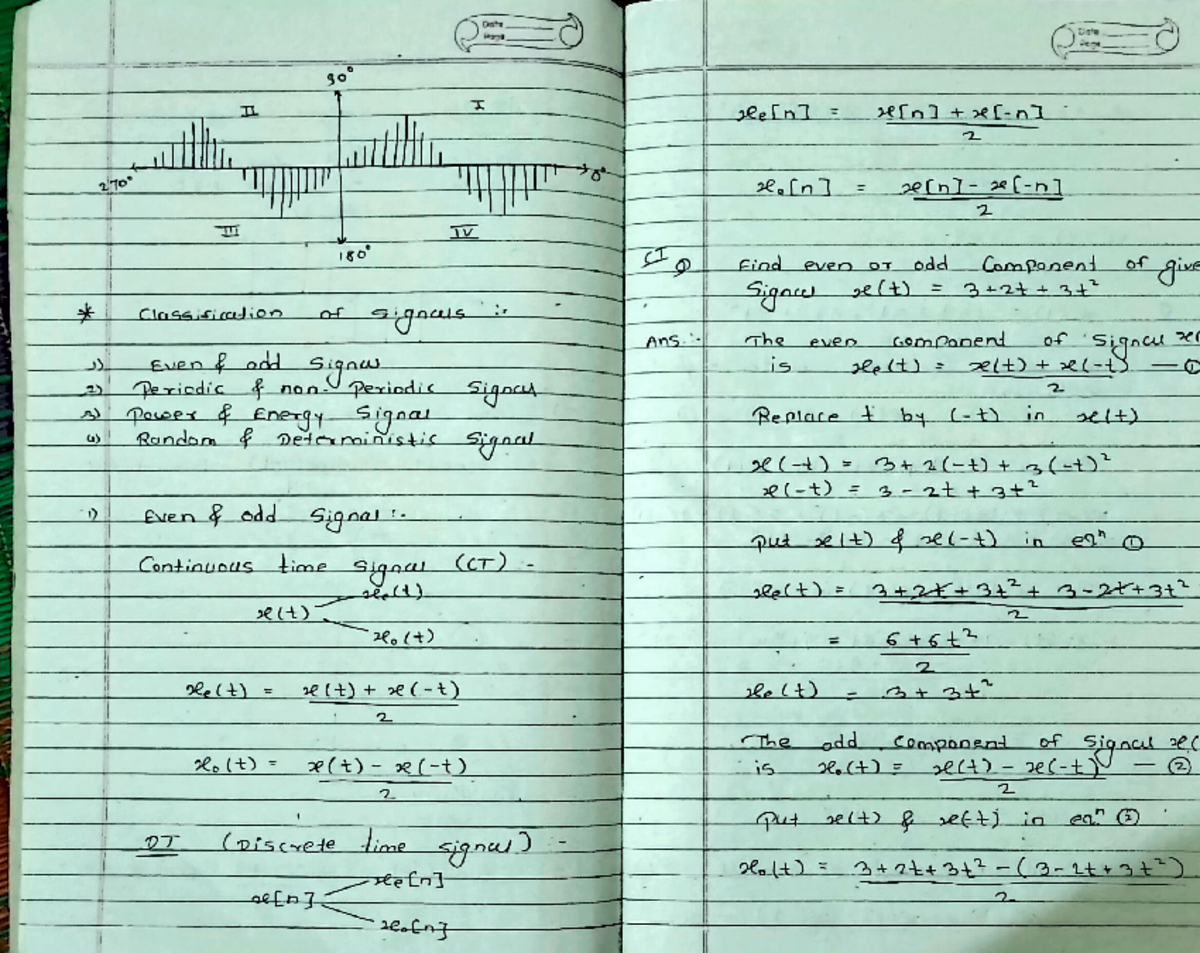 Date
Page
90°
II
I
270°
0°
III
IV
180°
* Classification of signals :-
1) Even & odd Signal
2) Periodic & non-Periodic Signal
3) Power & Energy Signal
4) Random & Deterministic Signal
1) Even & odd Signal :-
Continuous time signal (CT) -
xe(t)
x(t)
xo(t)
xe(t) = x(t) + x(-t)
2
xo(t) = x(t) - x(-t)
2
DT (Discrete time signal) -
xe[n]
x[n]
xo[n]
Date
Page
xe[n] = x[n] + x[-n]
2
xo[n] = x[n] - x[-n]
2
CT
Q Find even or odd Component of give
Signal x(t) = 3+2t+3t²
Ans :- The even component of signal x(
is xe(t) = x(t) + x(-t) — ①
2
Replace t by (-t) in x(t)
x(-t) = 3+2(-t) + 3(-t)²
x(-t) = 3-2t+3t²
Put x(t) & x(-t) in eqⁿ ①
xe(t) = 3+2t+3t² + 3-2t+3t²
2
= 6+6t²
2
xe(t) = 3+3t²
The odd component of Signal x(
is xo(t) = x(t) - x(-t) — ②
2
Put x(t) & x(-t) in eqⁿ ②
xo(t) = 3+2t+3t² - (3-2t+3t²)
2